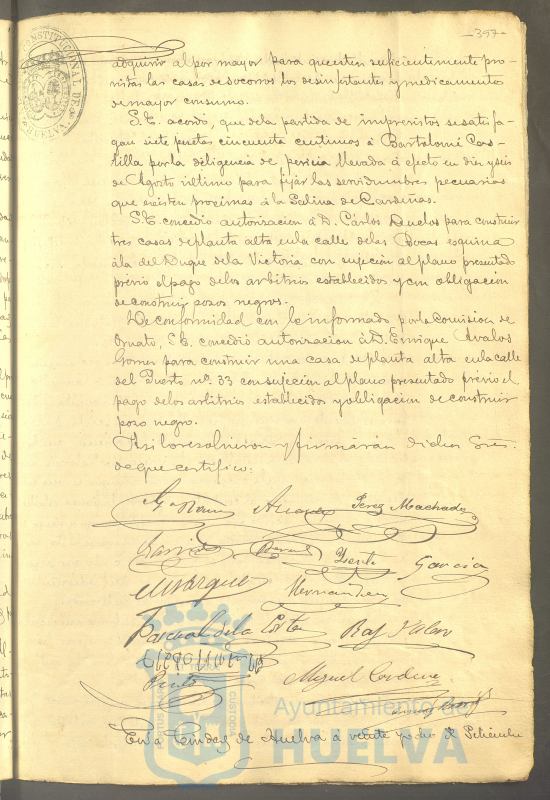 -397-
adquirir al por mayor para que esten suficientemente pro-
vistas las casas de socorros los desinfectantes y medicamento
de mayor consumo.
S.E. acordó, que de la partida de imprevistos se satisfa-
gan siete pesetas cincuenta centimos á Bartolomé Cas-
tilla por la diligencia de pericia llevada á efecto en diez y seis
de Agosto ultimo para fijar las servidumbres pecuarias
que existen proximas á la Salina de Cardeñas.
S.E. concedió autorizacion á D. Cárlos Duclos para construir
tres casas de planta alta en la calle de las Bocas esquina
á la del Duque de la Victoria con sujecion al plano presentado
prévio el pago de los arbitrios establecidos y con obligacion
de construir pozos negros.
De conformidad con lo informado por la Comision de
Ornato, S.E. concedió autorizacion á D. Enrique Avalos
Gomez para construir una casa de planta alta en la calle
del Puerto nº. 33 con sujecion al plano presentado prévio el
pago de los arbitrios establecidos y obligacion de construir
pozo negro.
Asi lo resolvieron y firmarán dichos Sres.
de que certifico:
Perez Machado
Garcia
Marquez Hernandez
Pascual de la Corte
Miguel
En la Ciudad de Huelva á veinte y ocho de
Ayuntamiento de
HUELVA
PORTUS
CUSTODIA
CONSTITUCIONAL DE
HUELVA